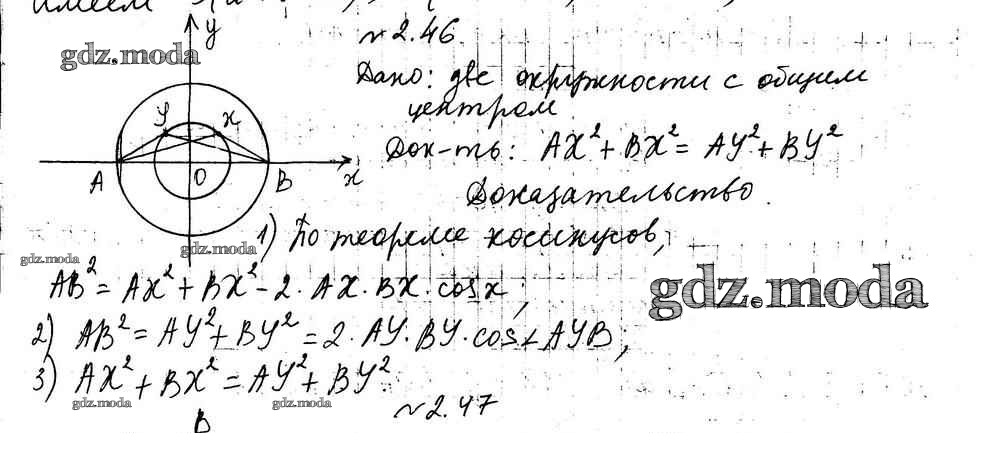 имеем
y
№2.46.
gdz.moda
Дано: две окружности с общим
центром
Y X
Док-ть: AX² + BX² = AY² + BY²
A O B x
Доказательство.
1) По теореме косинусов,
gdz.moda gdz.moda
AB² = AX² + BX² - 2 · AX · BX · cos x;
gdz.moda
2) AB² = AY² + BY² = 2 · AY · BY · cos ∠ AYB;
3) AX² + BX² = AY² + BY²
gdz.moda gdz.moda
№2.47
B